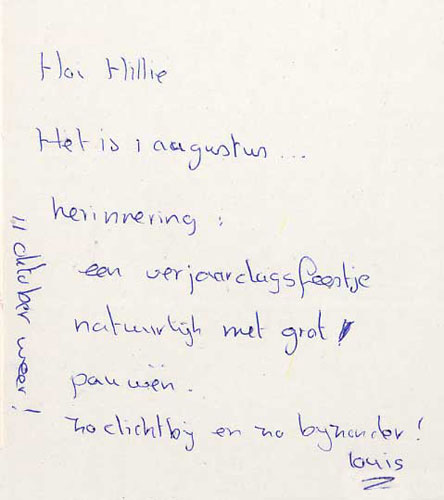 Hoi Hillie
Het is 1 augustus...
herinnering:
een verjaardagsfeestje
natuurlijk met grote
pauwen.
zo dichtbij en zo byzonder!
louis
11 oktober weer!